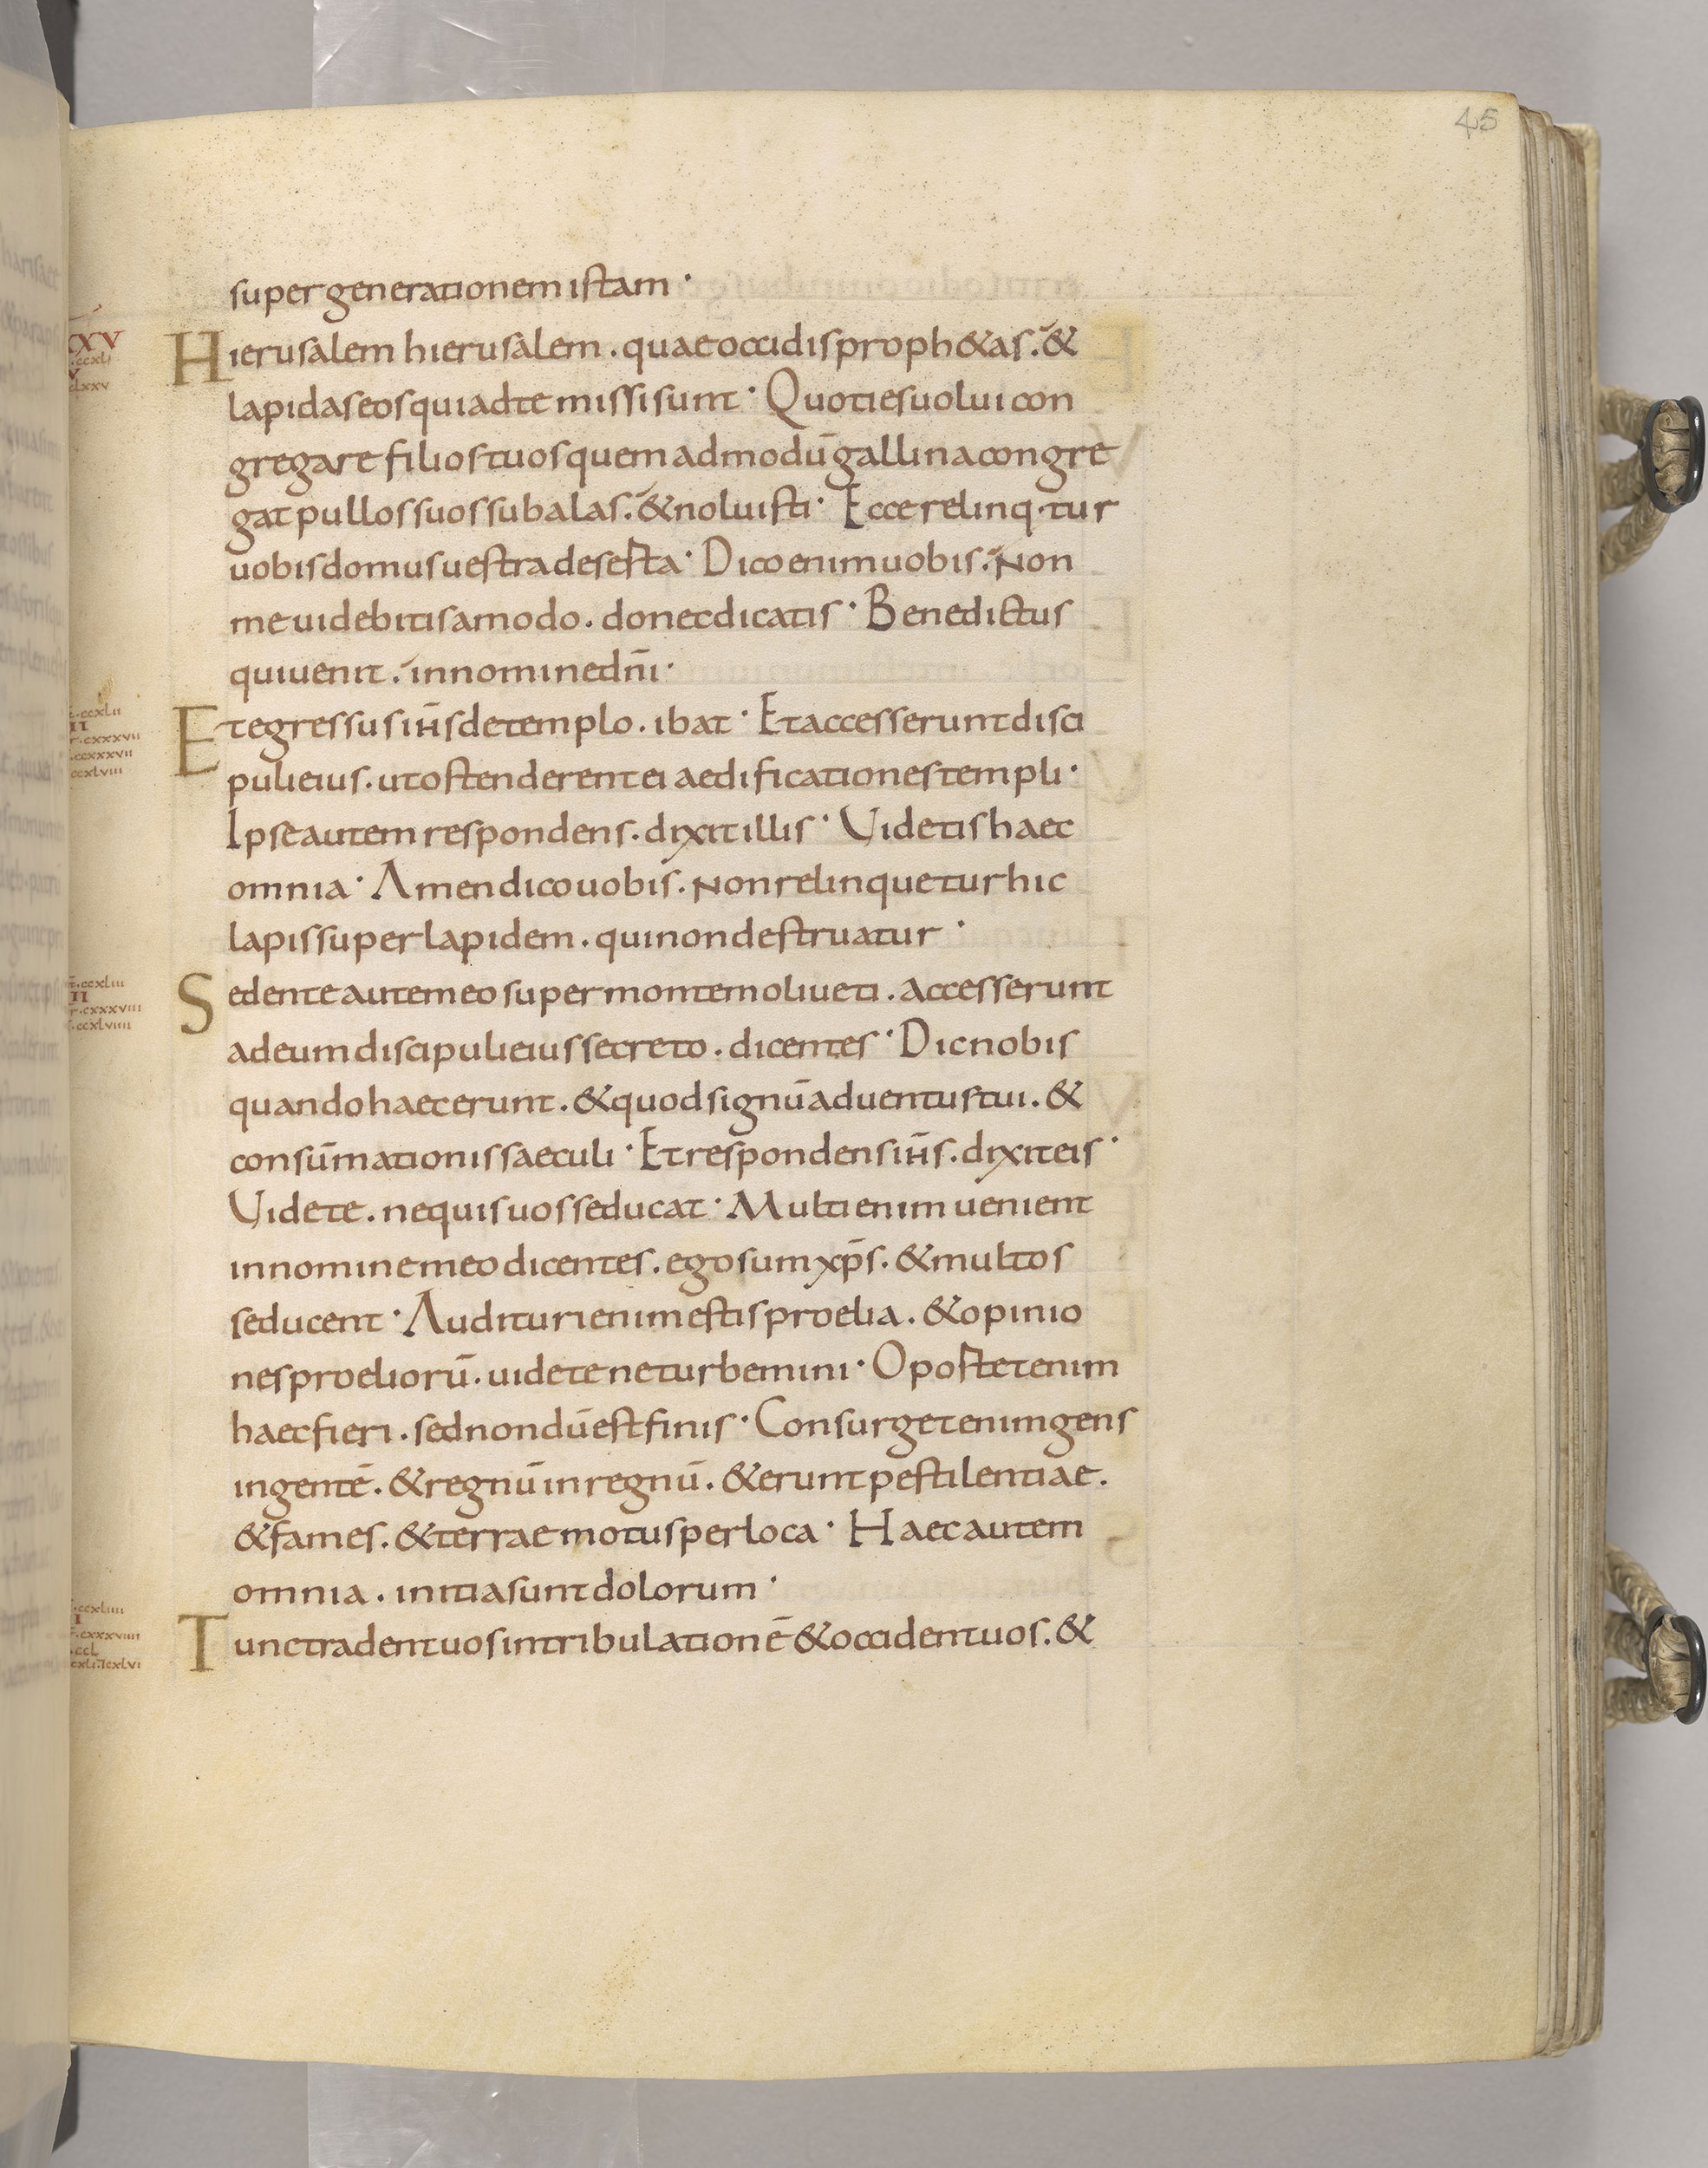 45
super generationem istam·
Hierusalem hierusalem. quae occidis proph&as. &
lapidas eos qui ad te missi sunt· Quoties uolui con
gregare filios tuos quem ad modū gallina congre
gat pullos suos sub alas. & noluisti· Ecce relinq·tur
uobis domus uestra deserta· Dico enim uobis. Non
me uidebitis amodo. donec dicatis· Benedictus
qui uenit. in nomine dn̄i·
Et egressus ih̄s de templo. ibat· Et accesserunt disci
puli eius. ut ostenderent ei aedificationes templi·
Ipse autem respondens. dixit illis· Videtis haec
omnia· Amen dico uobis. Non relinquetur hic
lapis super lapidem. qui non destruatur·
Sedente autem eo super montem oliueti. accesserunt
ad eum discipuli eius secreto. dicentes· Dic nobis
quando haec erunt. & quod signū aduentus tui. &
consūmationis saeculi· Et respondens ih̄s. dixit eis·
Videte. ne quis uos seducat· Multi enim uenient
in nomine meo dicentes. ego sum xp̄s. & multos
seducent· Audituri enim estis proelia. & opinio
nes proeliorū. uidete ne turbemini· Oportet enim
haec fieri. sed nondū est finis· Consurget enim gens
in gentē. & regnū in regnū. & erunt pestilentiae.
& fames. & terrae motus per loca· Haec autem
omnia. initia sunt dolorum·
Tunc tradent uos in tribulationē & occident uos. &